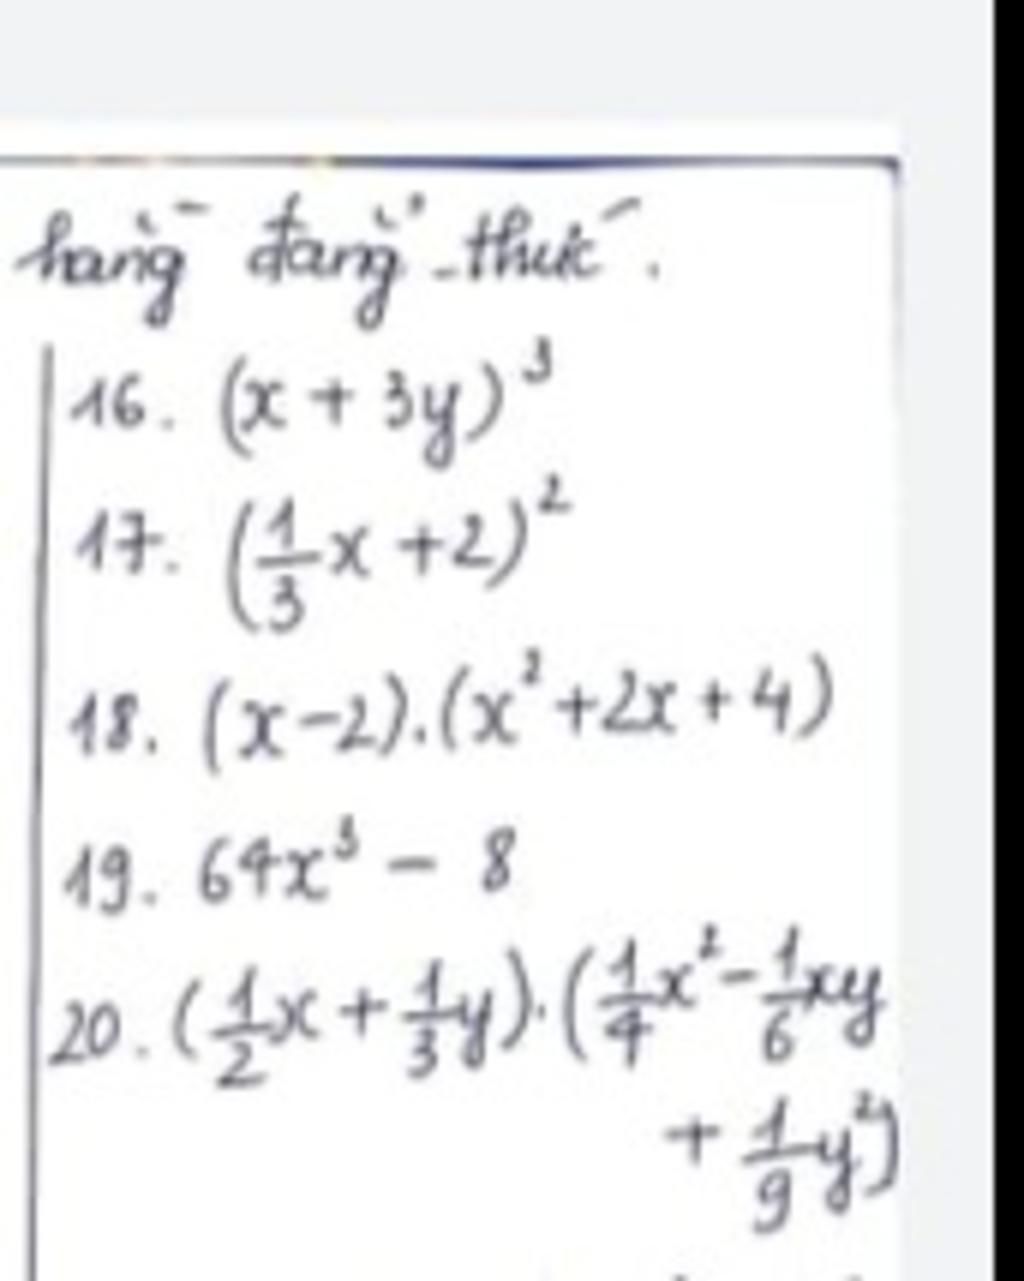 hằng đẳng thức.
16. (x + 3y)³
17. (1/3x + 2)²
18. (x-2).(x²+2x+4)
19. 64x³ - 8
20. (1/2x + 1/3y).(1/4x² - 1/6xy
+ 1/9y²)